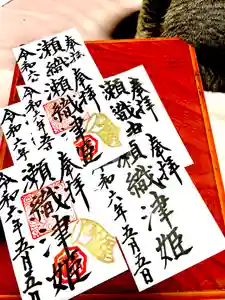 奉拝
瀬織
令和六
奉拝
瀬織津姫
令和六年五
奉拝
瀬織
奉拝
瀬織津姫
令和六年五月五日
奉拝
瀬織津姫
令和六年五月五日